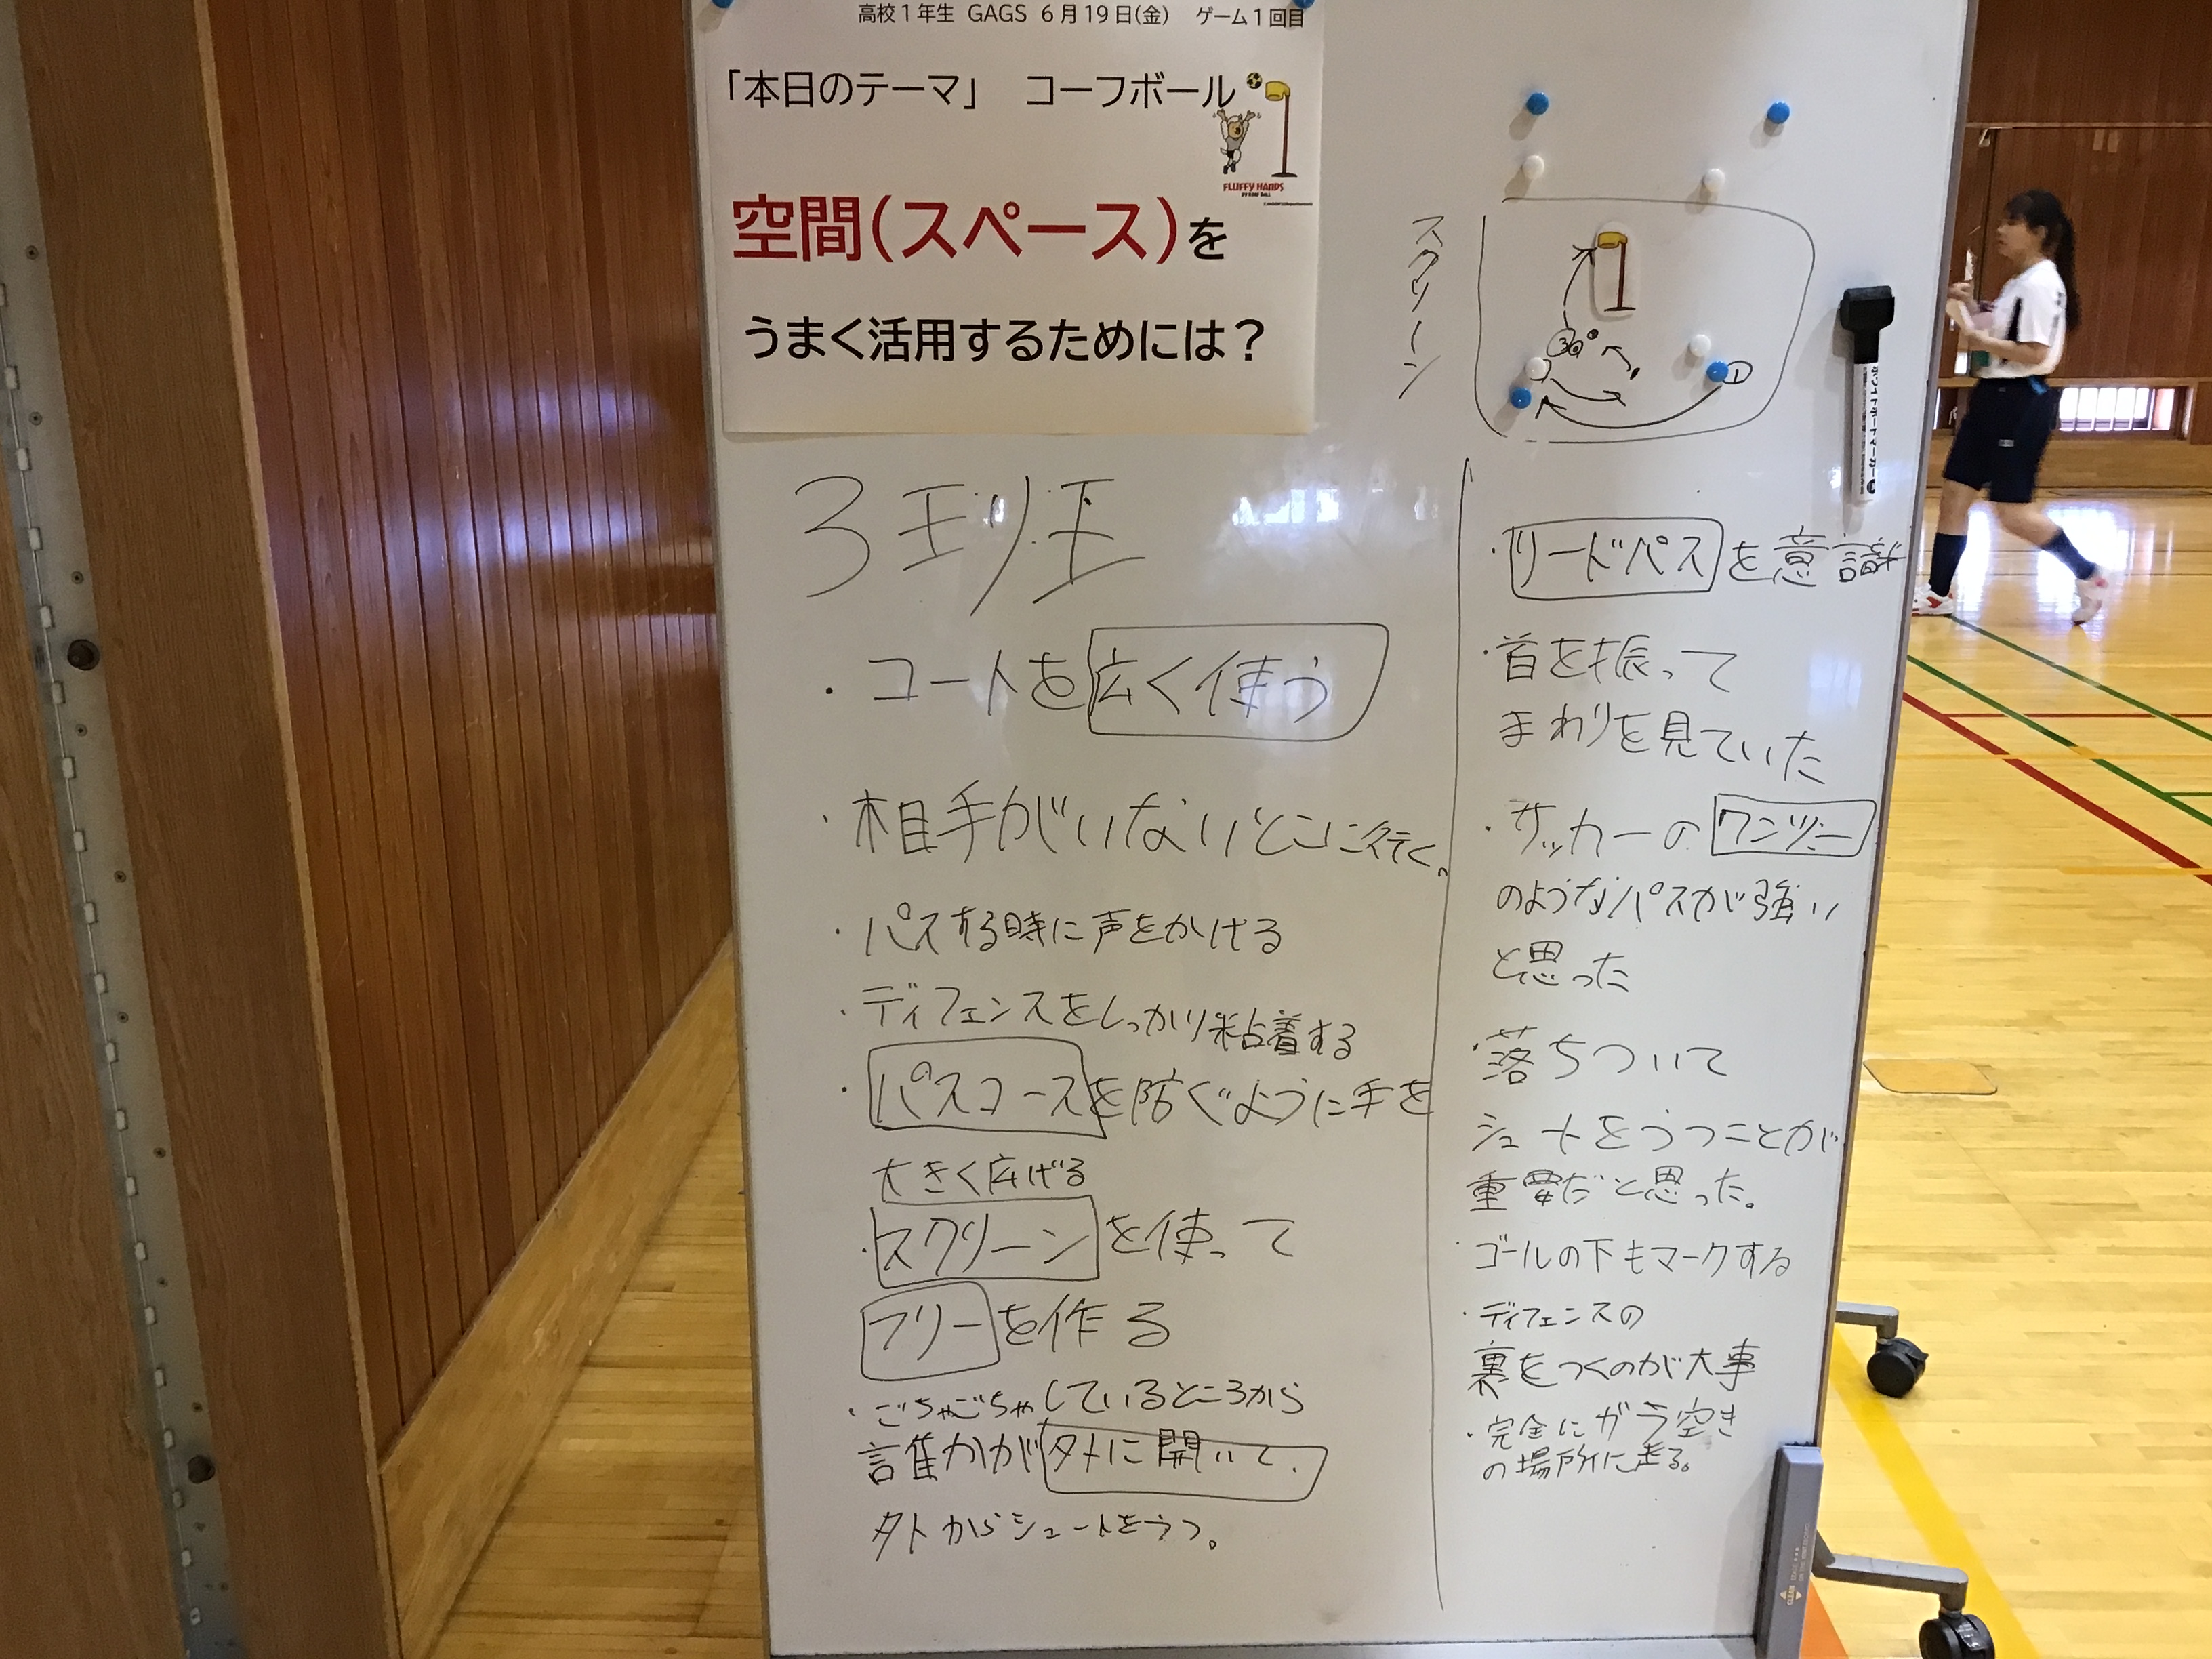 高校1年生 GAGS 6月19日(金) ゲーム1回目
「本日のテーマ」 コーフボール
FLUFFY HANDS
空間(スペース)を
うまく活用するためには?
スクリーン
①
3班
・コートを広く使う
・相手がいないとこに行く。
・パスする時に声をかける
・ディフェンスをしっかり粘着する
・パスコースを防ぐように手を
大きく広げる
・スクリーンを使って
フリーを作る
・ごちゃごちゃしているところから
誰かが外に開いて、
外からシュートをうつ。
・リードパスを意識
・首を振って
まわりを見ていた
・サッカーのワンツー
のようなパスが強い
と思った
・落ちついて
シュートをうつことが
重要だと思った。
・ゴールの下もマークする
・ディフェンスの
裏をつくのが大事
・完全にガラ空き
の場所に走る。
ホワイトボードマーカー